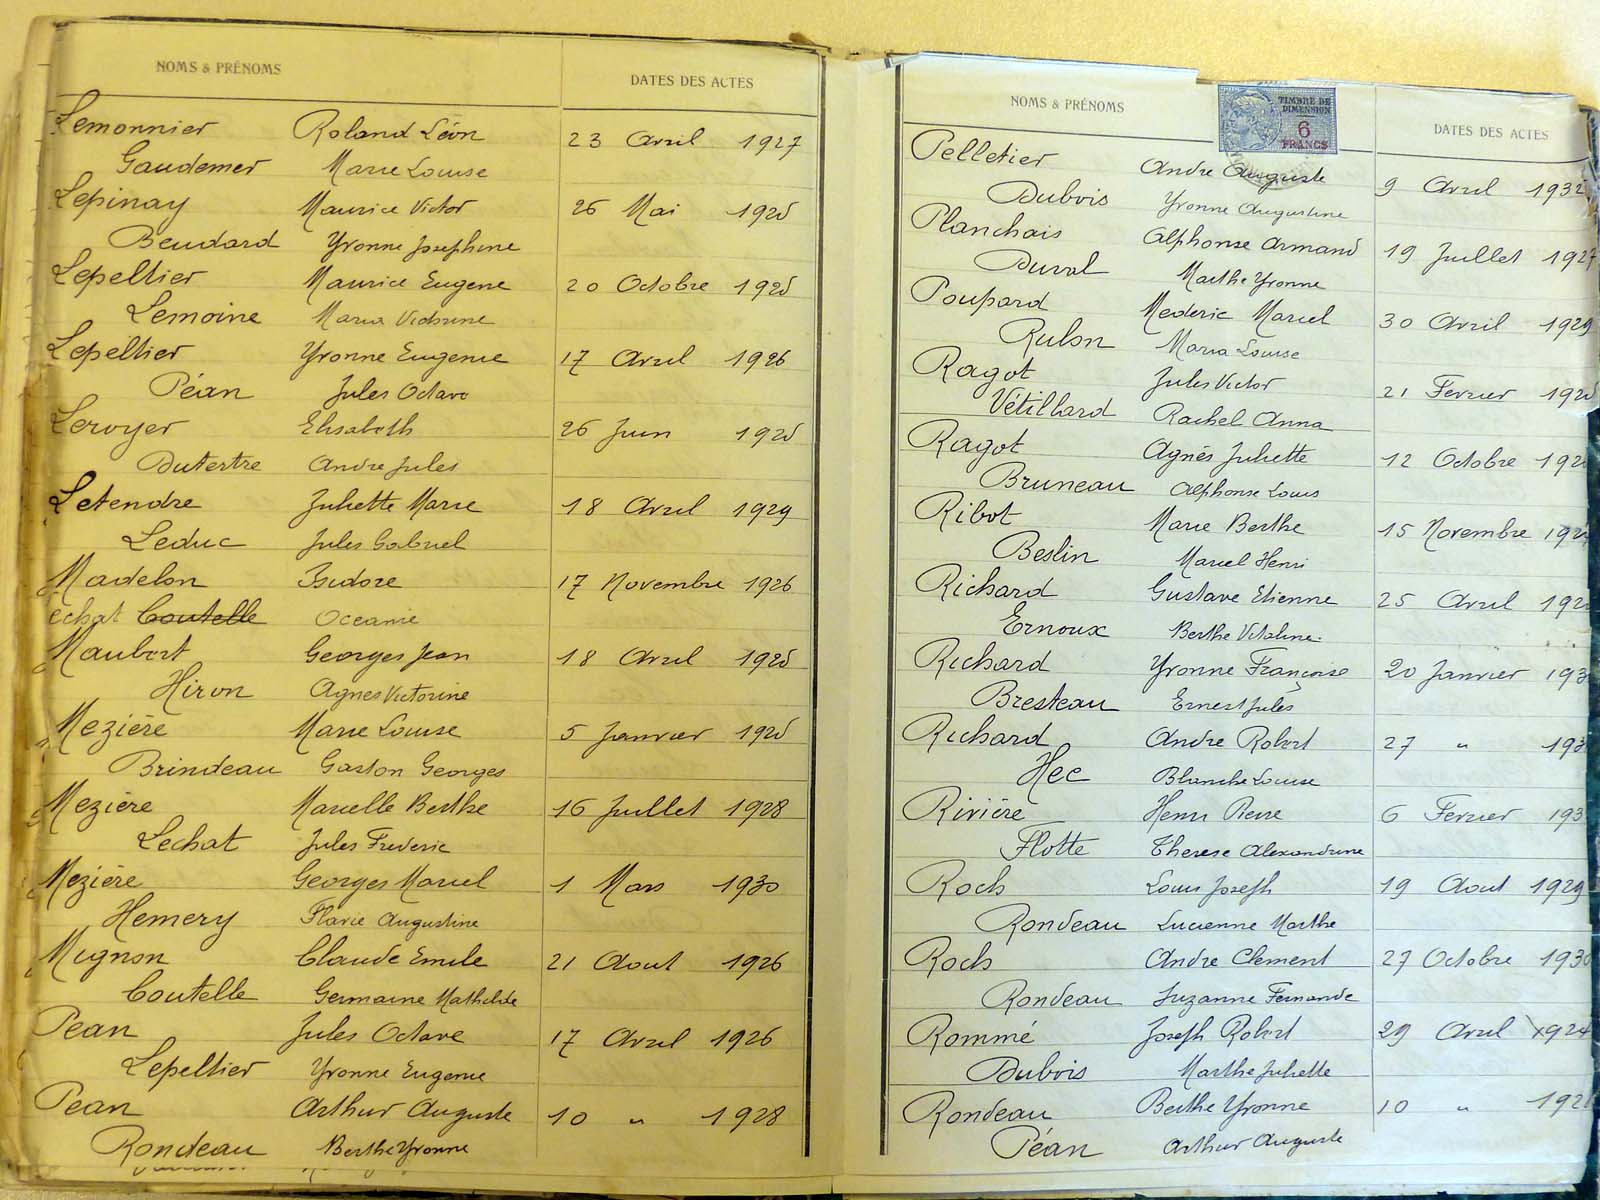 NOMS & PRÉNOMS DATES DES ACTES
Lemonnier Roland Léon 23 Avril 1927
Gaudemer Marie Louise
Lepinay Maurice Victor 26 Mai
Beudard Yvonne Josephine
Lepeltier Maurice Eugene 20 Octobre
Lemoine Maria Victorine
Lepeltier Yvonne Eugenie 17 Avril 1926
Péan Jules Octave
Leroyer Elisabeth 26 Juin
Dutertre Andre Jules
Letendre Juliette Marie 18 Avril 1929
Leduc Jules Gabriel
Madelon Isidore 17 Novembre 1926
echat Coutelle Oceanie
Maubert Georges Jean 18 Avril
Hiron Agnes Victorine
Mezière Marie Louise 5 Janvier
Brindeau Gaston Georges
Mezière Marcelle Berthe 16 Juillet 1928
Lechat Jules Frederic
Mezière Georges Marcel 1 Mars 1930
Hemery Flavie Augustine
Mignon Claude Emile 21 Aout 1926
Coutelle Germaine Mathilde
Pean Jules Octave 17 Avril 1926
Lepeltier Yvonne Eugenie
Pean Arthur Auguste 10 " 1928
Rondeau Berthe Yvonne
TIMBRE DE
DIMENSION
6
FRANCS
NOMS & PRÉNOMS DATES DES ACTES
Pelletier Andre Auguste 9 Avril 1932
Dubois Yvonne Augustine
Planchais Alphonse Armand 19 Juillet 1927
Duval Marthe Yvonne
Poupard Mederic Marcel 30 Avril 1929
Rulon Maria Louise
Ragot Jules Victor 21 Fevrier
Vétillard Rachel Anna
Ragot Agnés Juliette 12 Octobre
Bruneau Alphonse Louis
Ribot Marie Berthe 15 Novembre
Beslin Marcel Henri
Richard Gustave Etienne 25 Avril
Ernoux Berthe Vitaline
Richard Yvonne Françoise 20 Janvier 193
Bresteau Ernest Jules
Richard Andre Robert 27 " 193
Hec Blanche Louise
Rivière Henri Pierre 6 Fevrier 193
Flotte Therese Alexandrine
Roch Louis Joseph 19 Aout 1929
Rondeau Lucienne Marthe
Roch Andre Clement 27 Octobre 1930
Rondeau Suzanne Fernande
Rommé Joseph Robert 29 Avril 1924
Dubois Marthe Juliette
Rondeau Berthe Yvonne 10 " 192
Péan Arthur Auguste